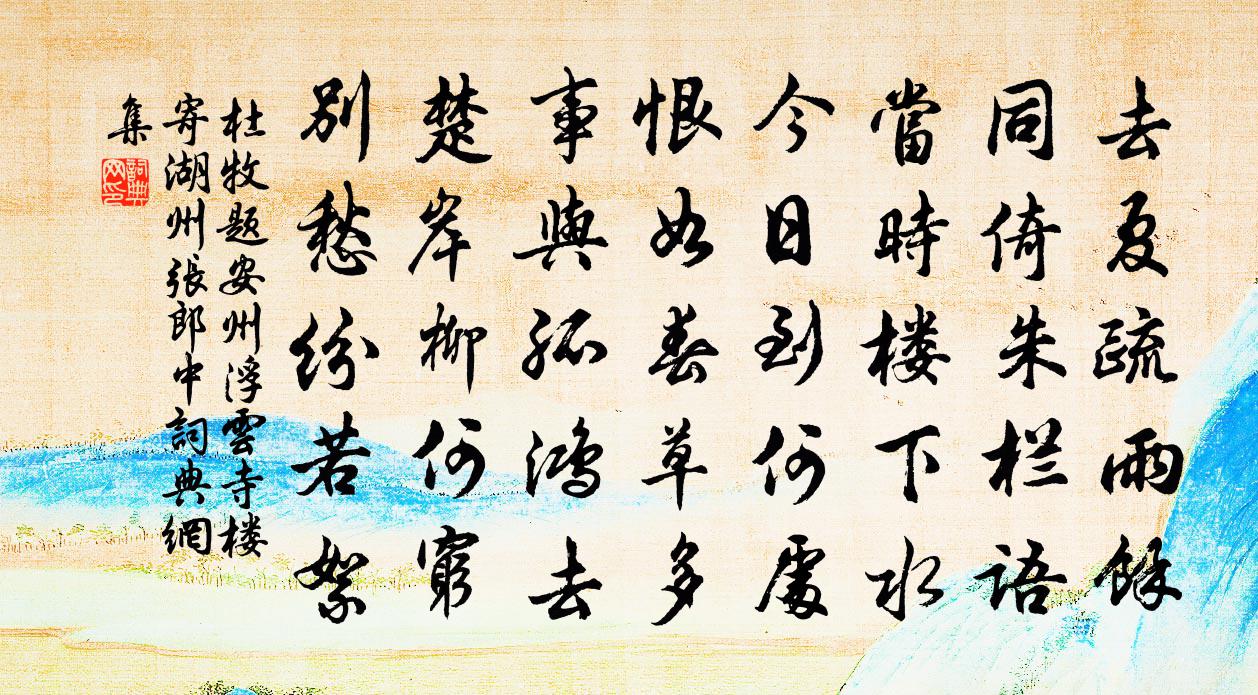 去夏疏雨餘
同倚朱栏語
當時楼下水
今日到何處
恨如春草多
事與孤鴻去
楚岸柳何窮
别愁紛若絮
杜牧題安州浮雲寺楼
寄湖州張郎中詞典網
集
詞典
网印